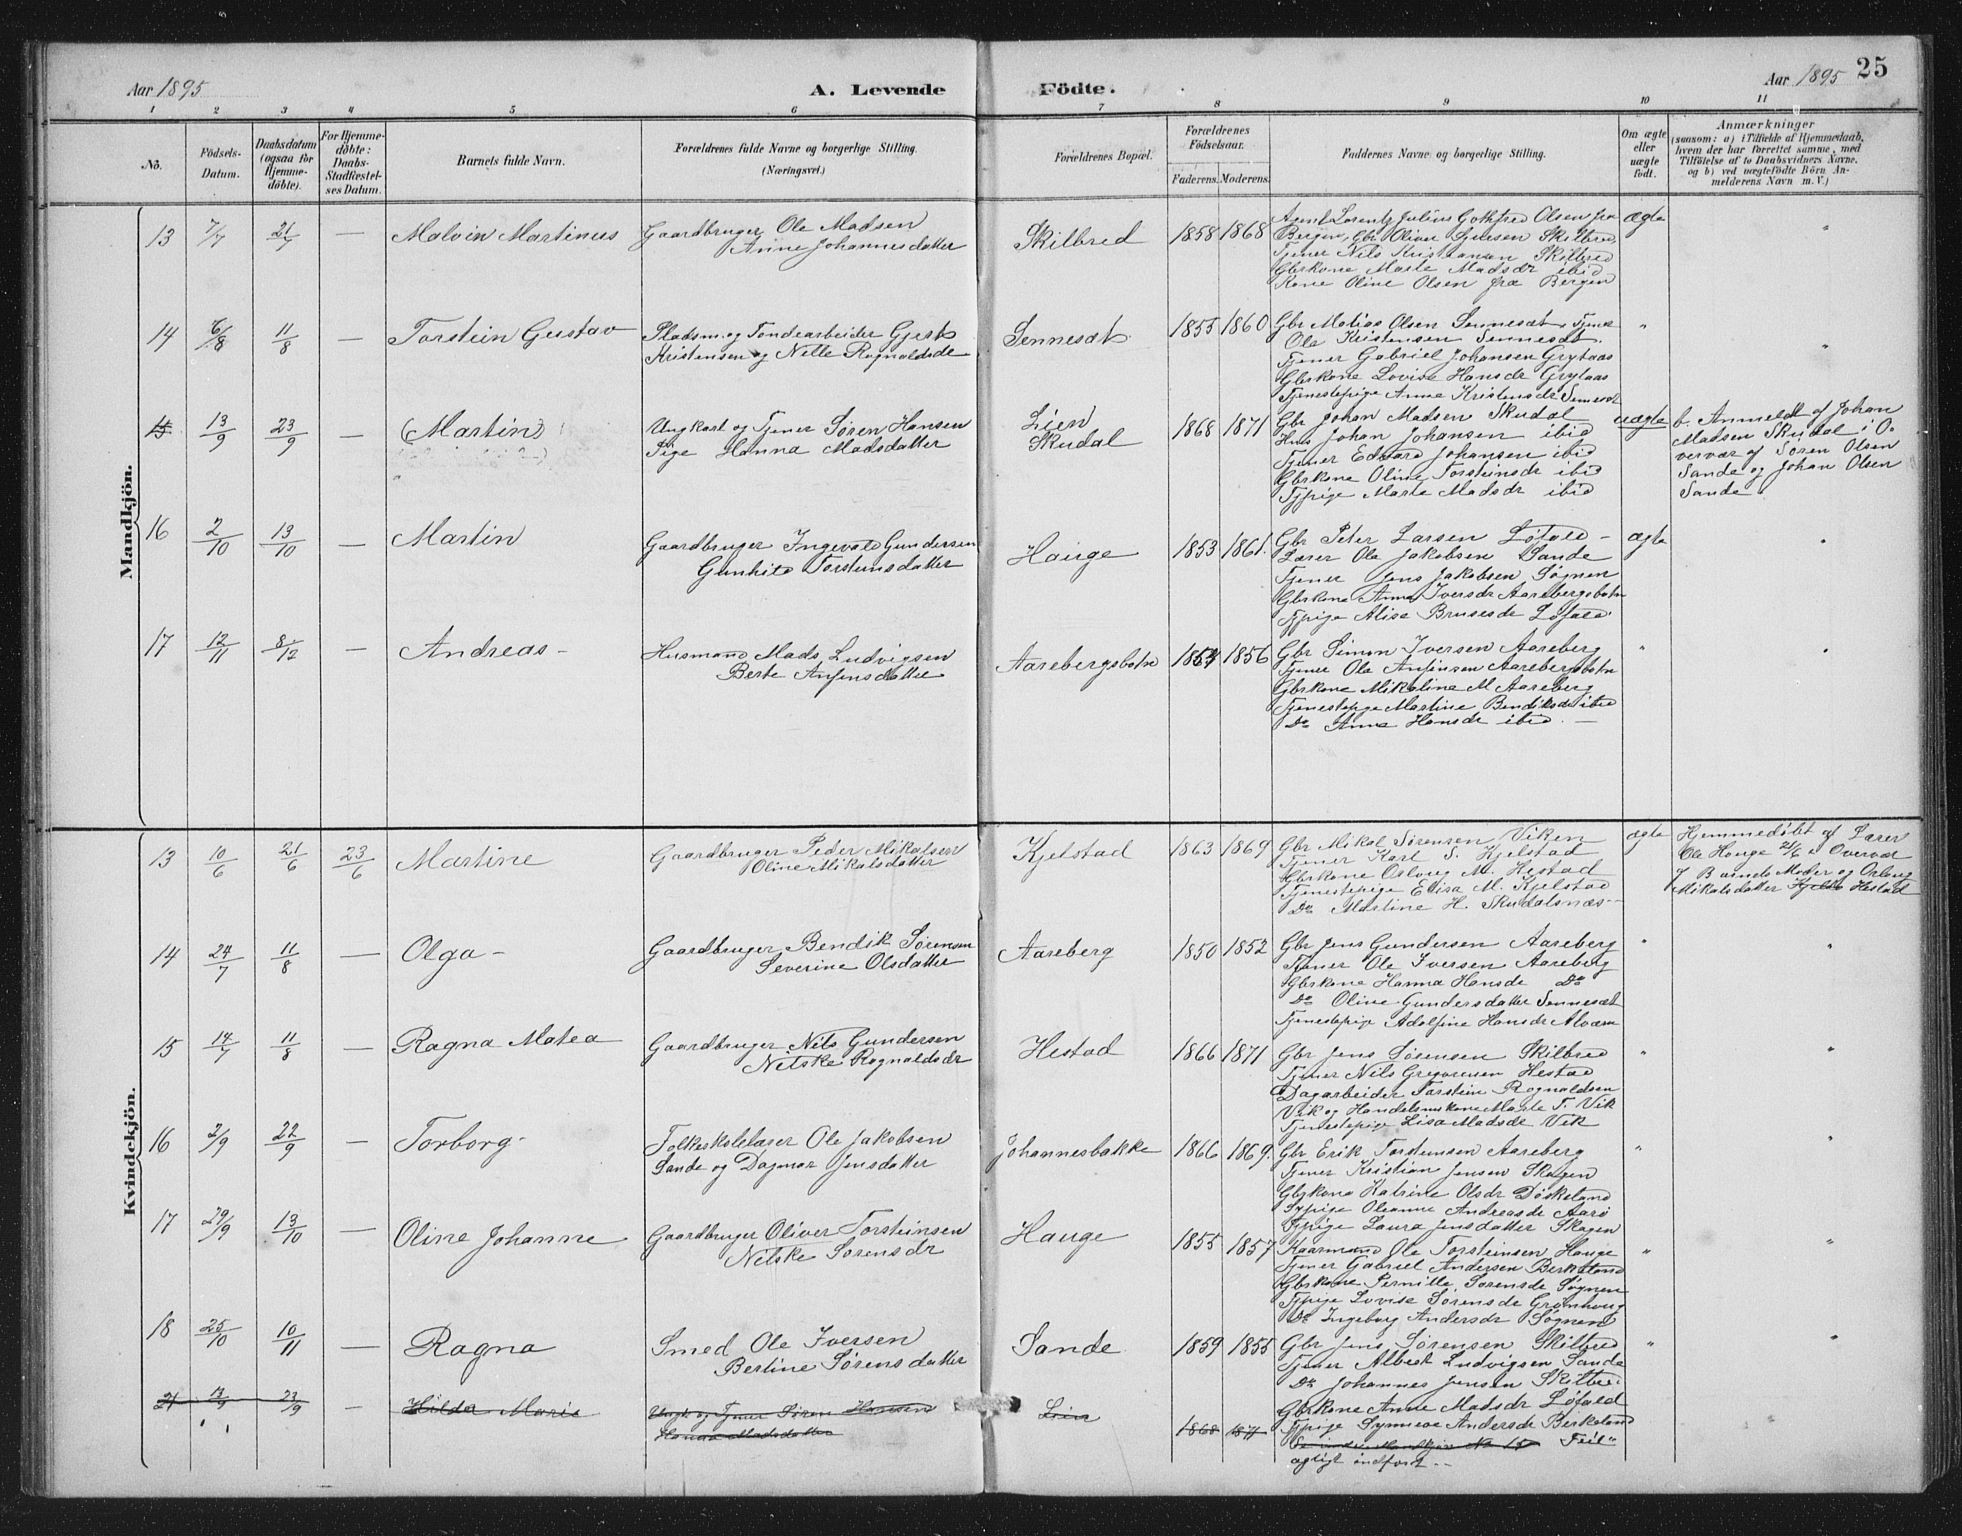 Aar 1895
A. Levende
Födte.
Aar 1895
25
1 2 3 4 5 6 7 8 9 10 11
No.
Födsels-
Datum.
Daabsdatum
(ogsaa for
Hjemme-
döbte).
For Hjemme-
döbte:
Daabs-
Stadfæstel-
ses Datum.
Barnets fulde Navn.
Forældrenes fulde Navne og borgerlige Stilling.
(Næringsvei.)
Forældrenes Bopæl.
Forældrenes
Födselsaar.
Faderens. Moderens.
Faddernes Navne og borgerlige Stilling.
Om ægte
eller
uægte
födt.
Anmærkninger
(saasom: a) i Tilfælde af Hjemmedaab,
hvem der har forrettet samme, med
Tilföielse af to Daabsvidners Navne.
og b) ved uægtefödte Börn An-
melderens Navn m. V.)
Mandkjön.
13 7/7 21/7 — Malvin Martinus
Gaardbruger Ole Madsen
Anne Johannesdatter
Skilbred 1858 1868
Agent Lorentz Julius Gothfred Olsen fra
Bergen, Gbr Oliver Skilbred,
Tjener Nils Kristiansen Skilbred
Gbrkone Marte Madsdr ibid
Kone Oline Olsen fra Bergen
ægte "
14 6/8 11/8 — Torstein Gustav
Pladsm. og Tøndearbeider Gjert
Kristensen og Nille Ragnaldsdr
Sennesæt 1855 1860
Gbr Matias Olsen Sennesæt, Tjener
Ole Kristensen Sennesæt.
Tjener Gabriel Johansen Grytaas
Gbrkone Lovise Hansdr Grytaas
Tjenestepige Anna Kristensdr Sennesæt
" "
15 13/9 23/9 — (Martin)
Ungkart og Tjener Søren Hansen
Pige Hanna Madsdatter
Lien
Skudal
1868 1871
Gbr Johan Madsen Skudal
Hus Johan Johansen ibid
Tjener Edvard Johansen ibid
Gbrkone Oline Torsteinsdr ibid
Tjpige Marte Madsdr ibid
uægte
b. Anmeldt af Johan
Madsen Skudal i O-
vervær af Søren Olsen
Sande og Johan Olsen
Sande.
16 2/10 13/10 — Martin
Gaardbruger Ingevald Gundersen
Gunhild Torsteinsdatter
Hauge 1853 1861.
Gbr Peter Larsen Løfald —
Lærer Ole Jakobsen Sande
Tjener Jens Jakobsen Søgnen
Gbrkone Anna Iversdr Aarebergsbotn
Tjpige Alisa Brusesdr Løfald.
ægte "
17 12/11 8/12 — Andreas —
Husmand Mads Ludvigsen
Berte Anfinsdatter
Aarebergsbotn 1854 1856
Gbr Simon Iversen Aareberg
Tjener Ole Anfinsen Aarebergsbotn
Gbrkone Mikaline M Aareberg
Tjenestepige Martine Bendiksdr ibid
Do Anna Hansdr ibid. —
" "
Kvindekjön.
13 10/6 21/6 23/6 Martine
Gaardbruger Peder Mikalsen
Oline Mikalsdatter
Kjelstad 1863 1869
Gbr Mikal Sørensen Viken
Tjener Karl S. Kjelstad
Gbrkone Oslaug M. Hestad
Tjenestepige Elisa M. Kjelstad
Do Martine H. Skudalsnæs —
ægte
Hjemmedøbt af Lærer
Ole Hauge 21/6 i Overvær
af Barnets Moder og Oslaug
Mikalsdatter Hestad
14 24/7 11/8 — Olga —
Gaardbruger Bendik Sørensen
Severine Olsdatter
Aareberg 1850 1852
Gbr Jens Gundersen Aareberg
Tjener Ole Iversen Aareberg
Gbrkone Hanna Hansdr Do
Do Oline Gundersdatter Sennesæt
Tjenestepige Adolfine Hansdr Alværn
" "
15 14/7 11/8 — Ragna Matea
Gaardbruger Nils Gundersen
Nilske Ragnaldsdr
Hestad 1866 1871
Gbr Jens Sørensen Skilbred
Tjener Nils Gregoriusen Hestad
Dagarbeider Torstein Ragnaldsen
Vik og Handelsmskone Marte T. Vik
Tjenestepige Lisa Madsdr Vik
" "
16 2/9 22/9 — Torborg —
Folkeskolelærer Ole Jakobsen
Sande og Dagmar Jensdatter
Johannesbakke 1866 1869.
Gbr Erik Torsteinsen Aareberg
Tjener Kristian Jensen Skagen
Gbrkone Katrine Olsdr Døskeland
Tjpige Oleanne Andreasdr Aarø
Tjpige Laura Jensdatter Skagen
" "
17 29/9 13/10 — Oline Johanne
Gaardbruger Oliver Torsteinsen
Nilske Sørensdr
Hauge 1855 1857
Kaarmand Ole Torsteinsen Hauge
Tjener Gabriel Andersen Berkeland
Gbrkone Pernille Sørensdr Søgnen
Tjpige Lovise Sørensdr Grønhaug
Do Ingeborg Andersdr Søgnen
" "
18 25/10 10/11 — Ragna
Smed Ole Iversen
Bertine Sørensdatter
Sande 1859 1855
Gbr Jens Sørensen Skilbred
Tjener Albert Ludvigsen Sande
Do Johannes Jensen Skilbred
Gbrkone Anne Madsdr Løfald
Tjpige Synneve Andersdr Berkeland
" "
21 13/9 23/9 — Hilda Marie
Ungk. og Tjener Søren Hansen
Hanna Madsdatter
Lien 1868 1871
No 15 Feil-
agtigt indført. —